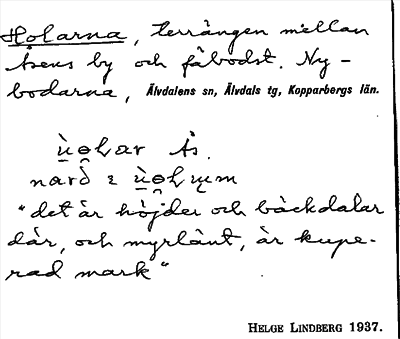 Holarna, terrängen mellan
Åsens by och fäbodst. Ny-
bodarna, Älvdalens sn, Älvdals tg, Kopparbergs län.
Ås.
"det är höjder och bäckdalar
där, och myrlänt, är kupe-
rad mark"
HELGE LINDBERG 1937.